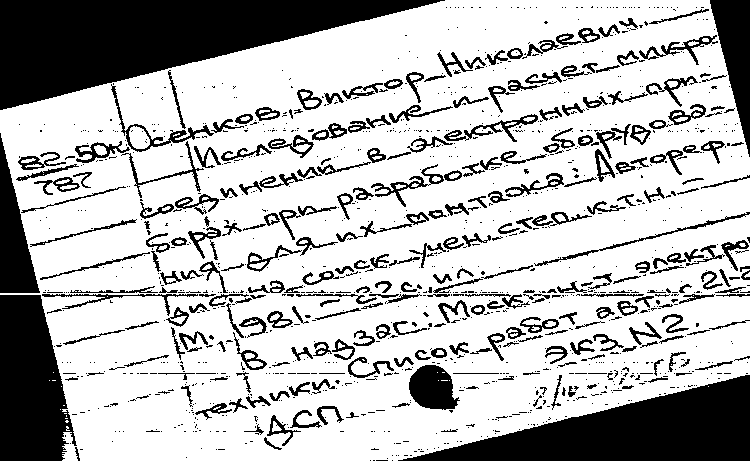 82-50к Осенков, Виктор Николаевич.
782
Исследование и расчет микро-
соединений в электронных при-
борах при разработке оборудова-
ния для их монтажа: Автореф.
дис. на соиск. учен. степ. к.т.н. –
М., 1981. – 22с. ил.
В надзаг.: Моск. ин-т электрон.
техники. Список работ авт.: с. 21-2
ДСП. ЭКЗ. N2.